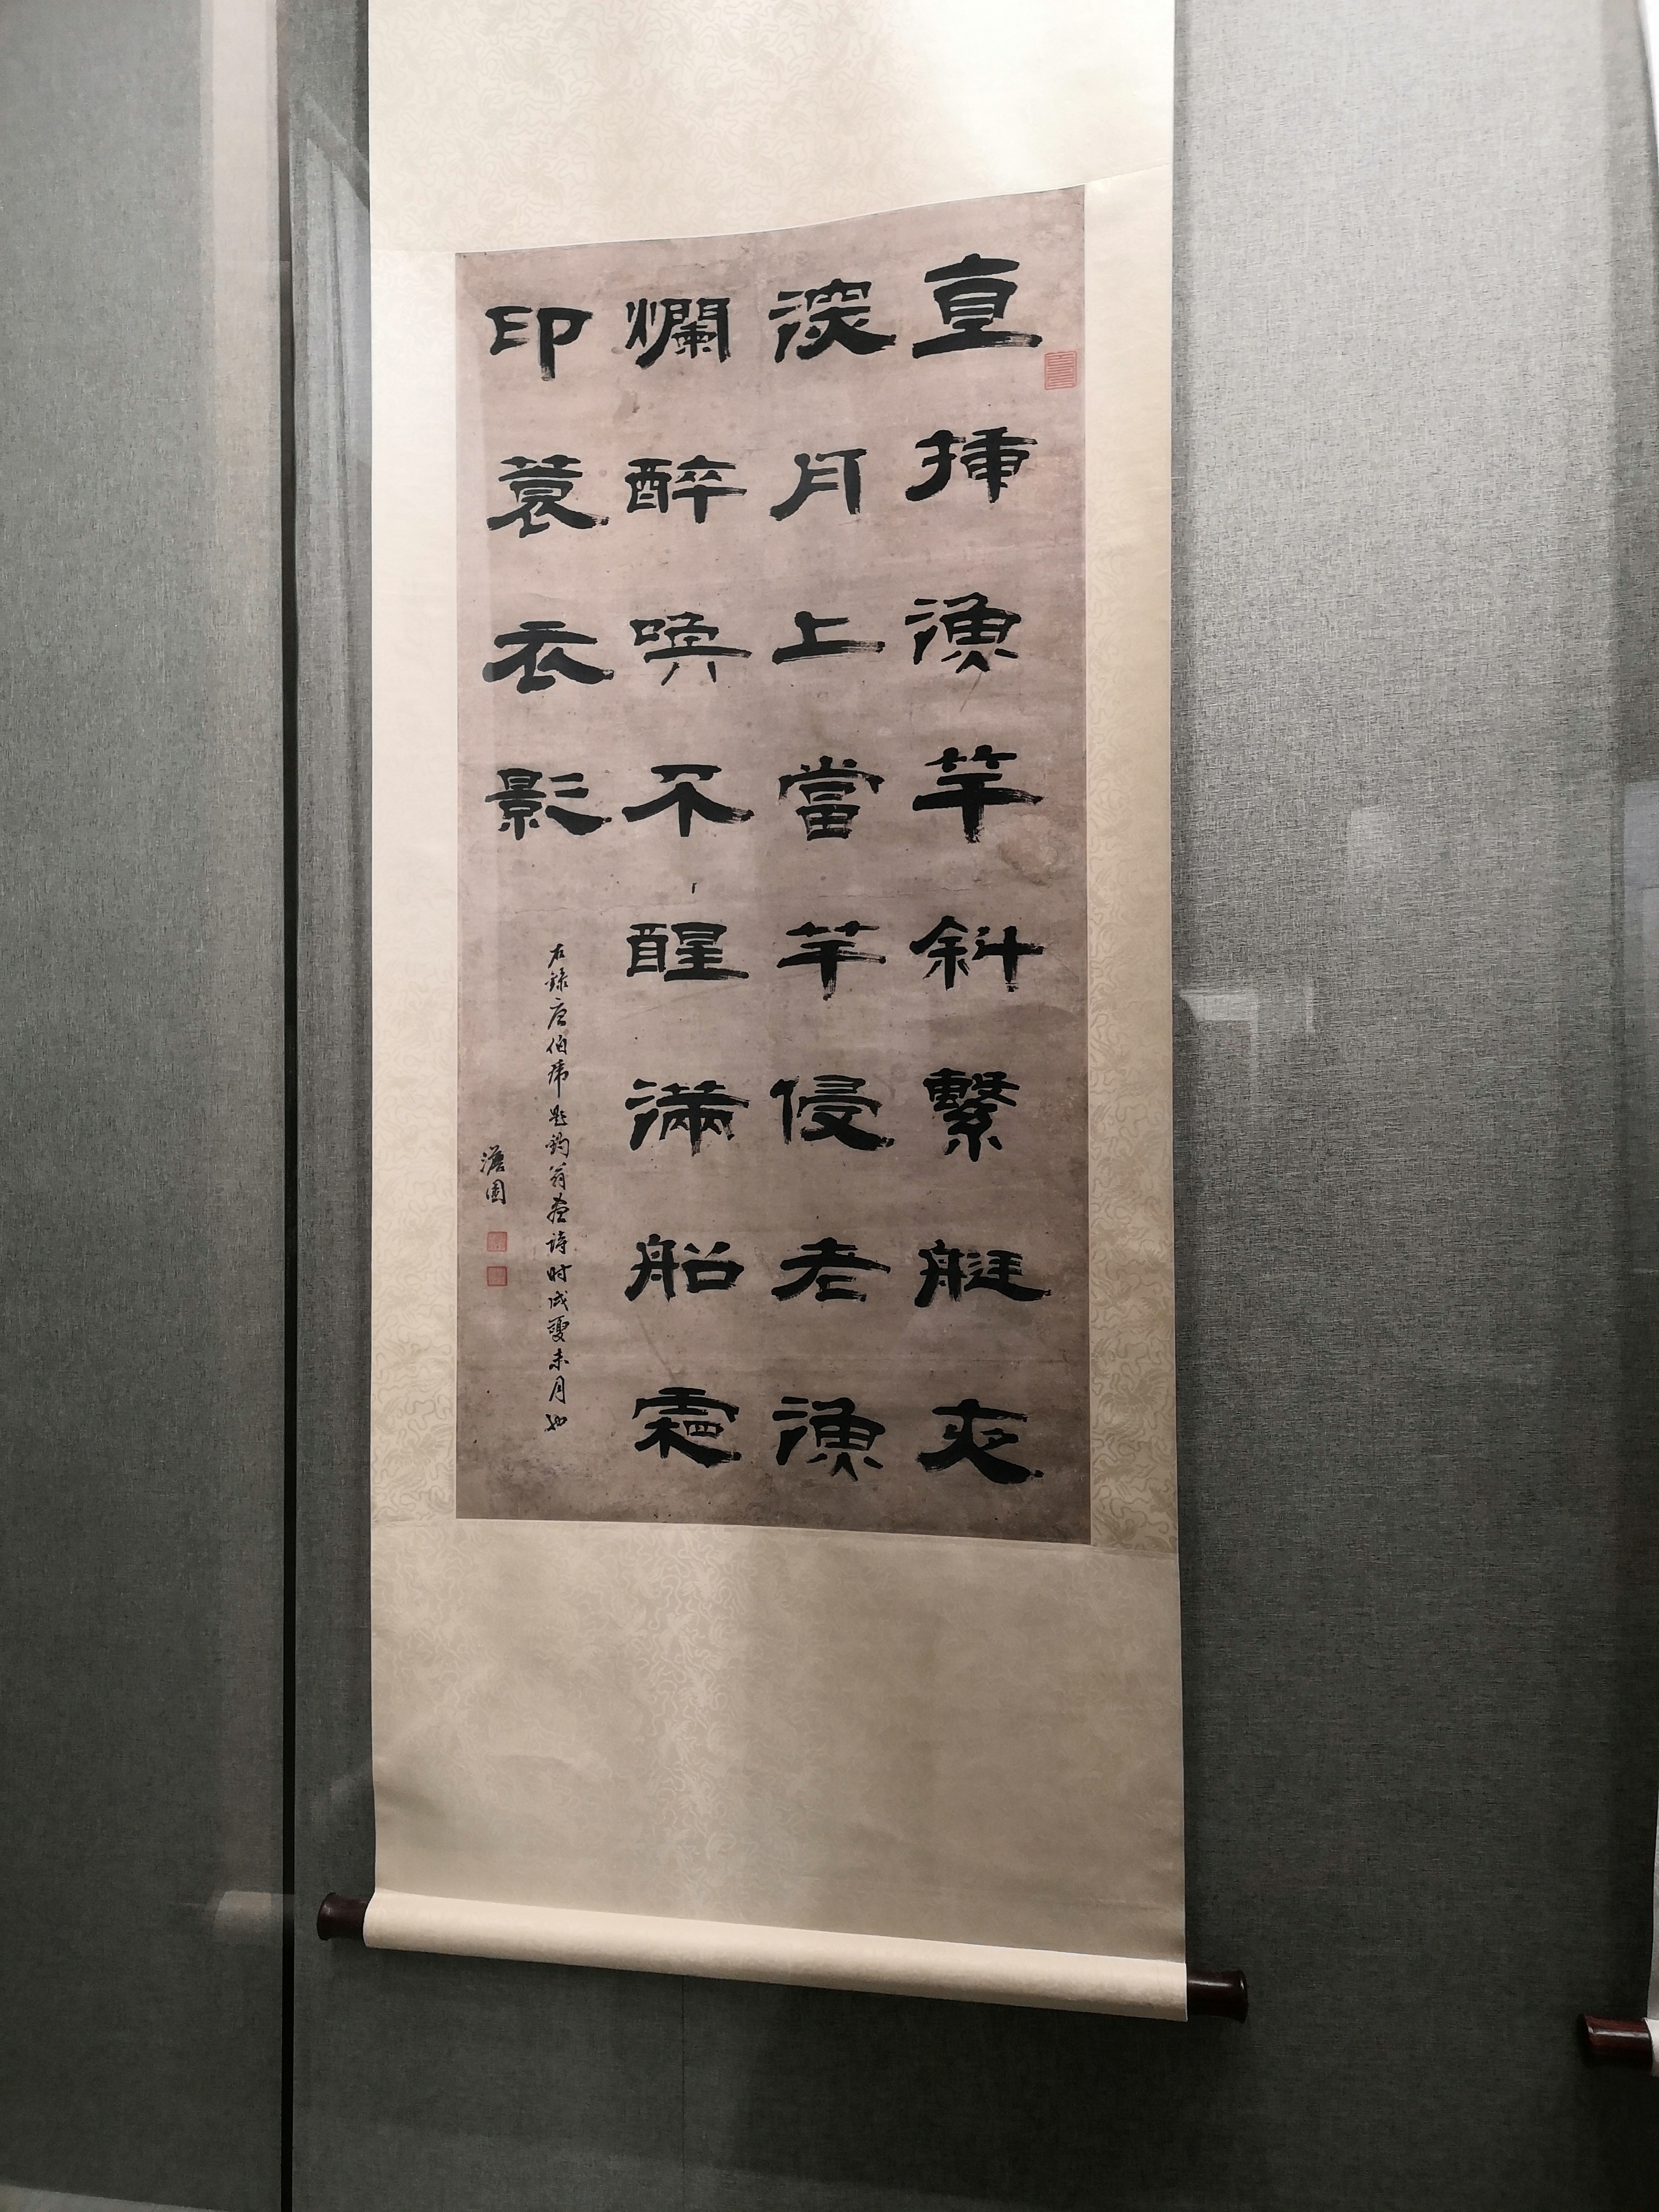 直插漁竿斜繫艇夾
深月上當竿侵老漁
爛醉喚不醒滿船霜
印蓑衣影
右錄唐伯虎題釣翁畫詩時戊夏未月也
澹園